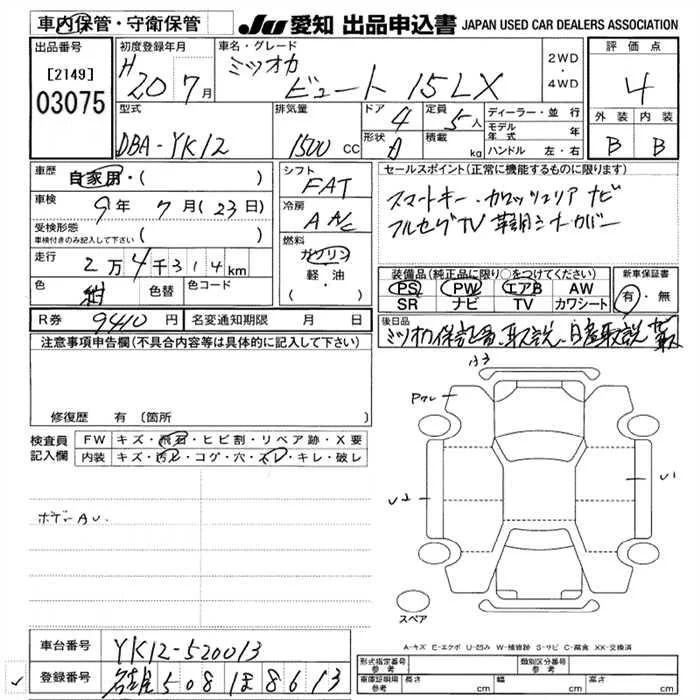 車内保管・守衛保管
JU 愛知 出品申込書 JAPAN USED CAR DEALERS ASSOCIATION
出品番号
[2149]
03075
初度登録年月
H20 7月
車名・グレード
ミツオカ
ビュート 15LX
2WD
・
4WD
評価点
4
外装 内装
B B
型式
DBA-YK12
排気量
1500 CC
ドア 4
形状 A
定員 5人
積載 kg
ディーラー・並行
モデル年式 年
ハンドル 左・右
車歴
自家用・( )
車検
9年 7月(23日)
受検形態
車検付きのみ記入して下さい ( )
走行
2万4千314km
色
紺
色替
色コード
R券 9410円
名変通知期限 月 日
シフト
FAT
冷房
AAC
燃料
ガソリン
軽・油
・( )
セールスポイント(正常に機能するものに限ります)
スマートキー・カロッツェリア ナビ
フルセグTV 革調シートカバー
装備品(純正品に限り○をつけてください)
PS PW エアB AW
SR ナビ TV カワシート
新車保証書
有・無
後日品
ミツオカ保証書、取説、日産取説
注意事項申告欄(不具合内容等は具体的に記入して下さい)
修復歴 有(箇所 )
検査員記入欄
FW キズ・飛石・ヒビ割・リペア跡・X要
内装 キズ・汚レ・コゲ・穴・スレ・キレ・破レ
ボデーAU.
U2
U1
スペア
A-キズ E-エクボ U-凹み W-補修跡 S-サビ C-腐食 XX-交換済
車台番号 YK12-520013
登録番号 名古屋508 ほ 8613
形式指定番号 参考
類別区分番号 参考
車庫証明用 参考
長さ cm
幅 cm
高さ cm